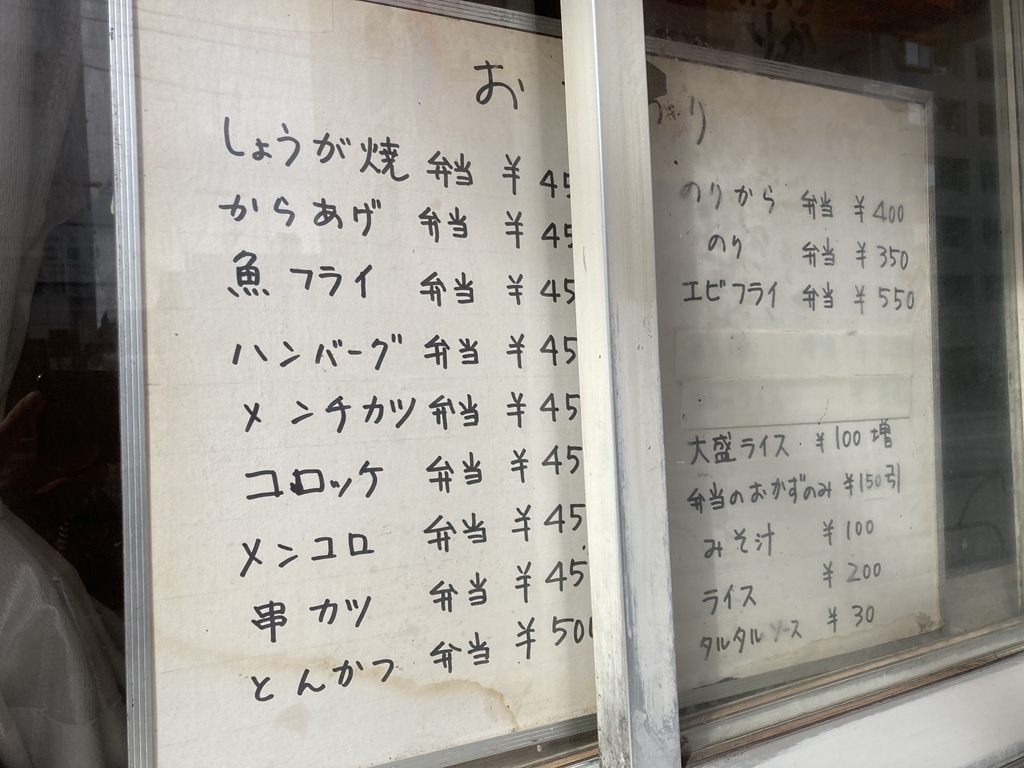 お り
しょうが焼 弁当 ¥45
からあげ 弁当 ¥45
魚フライ 弁当 ¥45
ハンバーグ 弁当 ¥45
メンチカツ 弁当 ¥45
コロッケ 弁当 ¥45
メンコロ 弁当 ¥45
串カツ 弁当 ¥45
とんかつ 弁当 ¥500
のりから 弁当 ¥400
のり 弁当 ¥350
エビフライ 弁当 ¥550
大盛ライス ¥100増
弁当のおかずのみ ¥150引
みそ汁 ¥100
ライス ¥200
タルタルソース ¥30